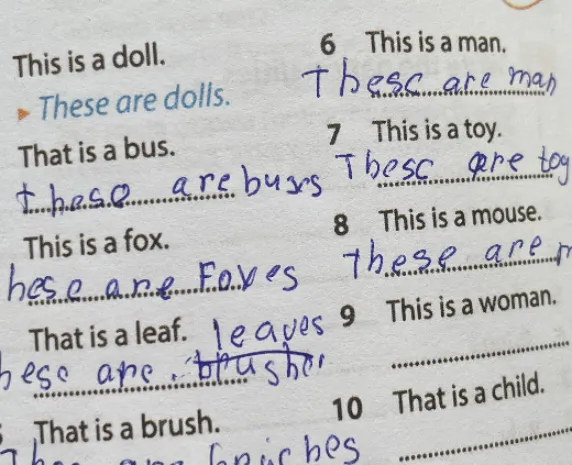 This is a doll.
These are dolls.
That is a bus.
these are buses
This is a fox.
hese are Foves
That is a leaf. leaves
hese are brusher
That is a brush.
are
6 This is a man.
These are man
7 This is a toy.
These are toy
8 This is a mouse.
These are
9 This is a woman.
10 That is a child.